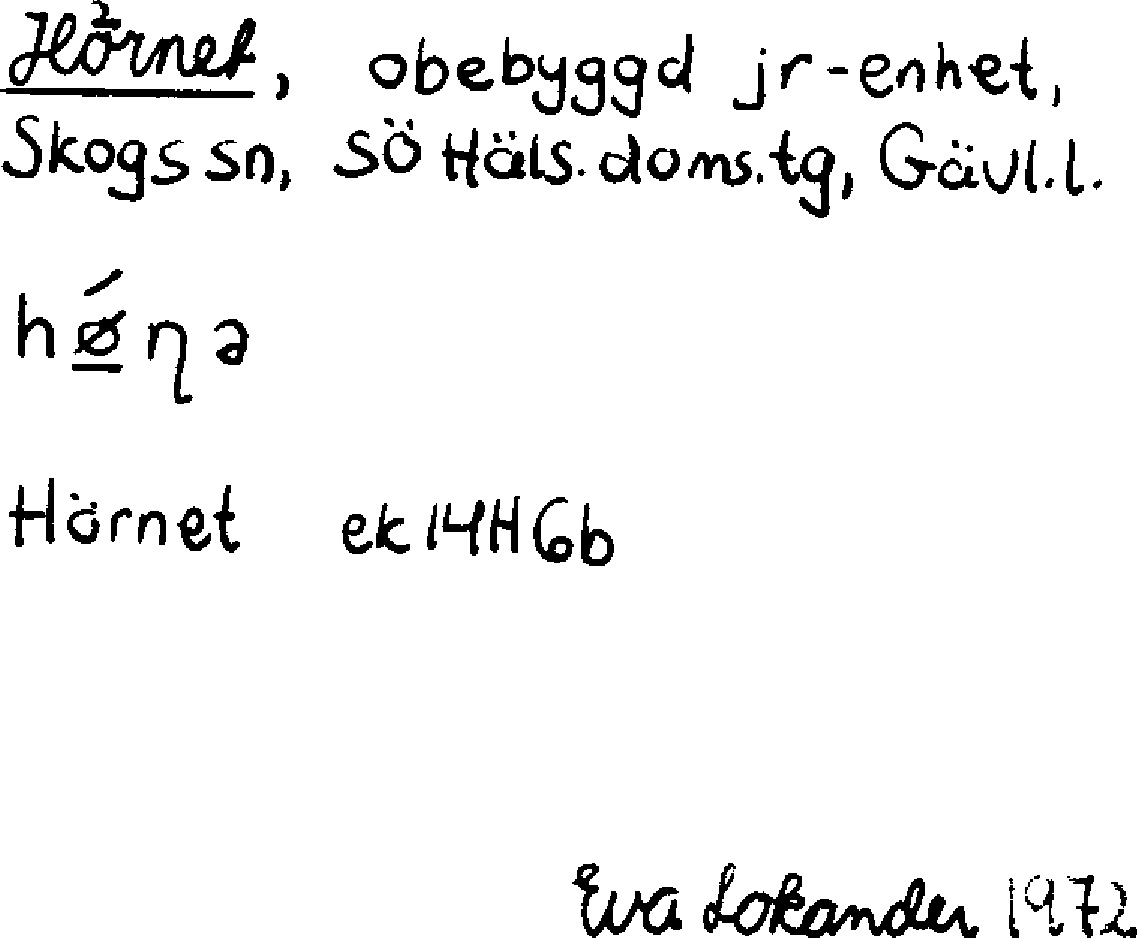 Hörnet, obebyggd jr-enhet,
Skogs sn, SÖ Häls. doms.tg, Gävl.l.
hǿ̲ɳə
Hörnet ek 14H6b
Eva Lokander 1972